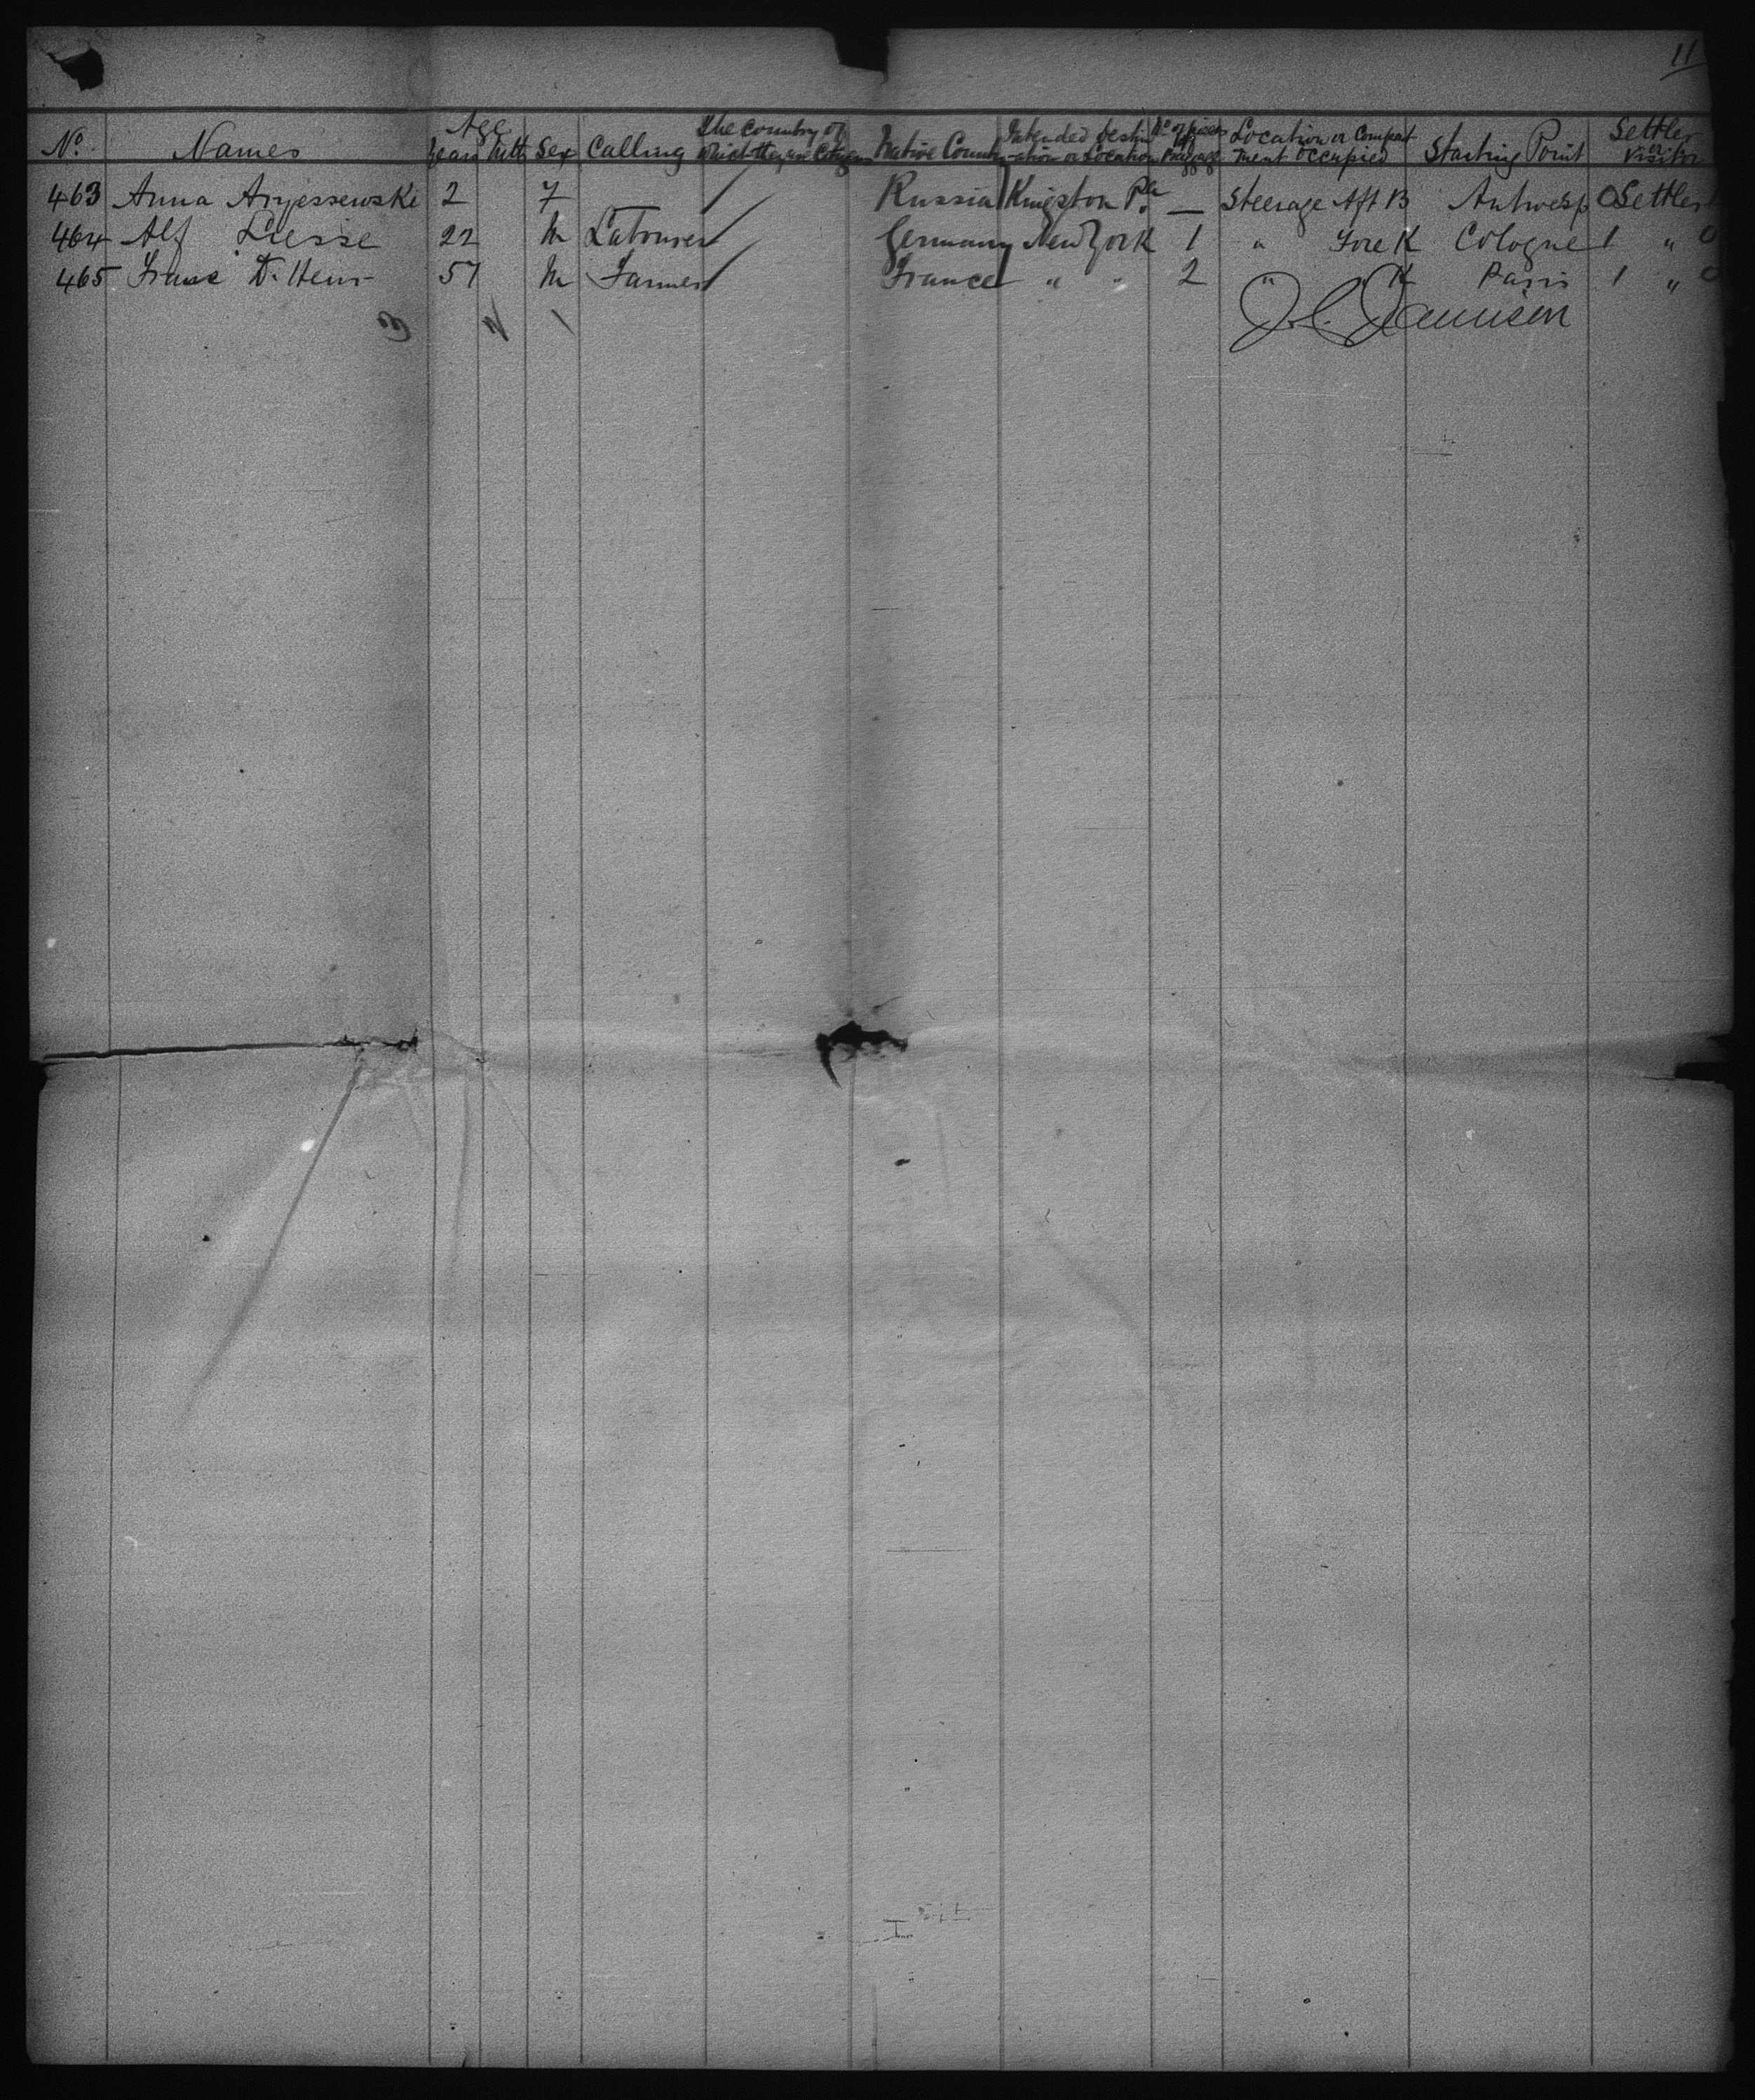 11
No. Names Age Years Mth Sex Calling The Country of which they are Citizens Native Country Intended Destination or Location No of pieces Baggage Location or Compartment occupied Starting Point Settler or Visitor
463 Anna 2 F Russia Kingston Pa. — Steerage Aft B Antwerp 0 Settler
464 Alf Liesse 22 M Labourer Germany New York 1 " Fore K Cologne 1 "
465 D. Hens 57 M Farmer France " " 2 " " K Paris 1 "
3 2 1
J. C. Jamison